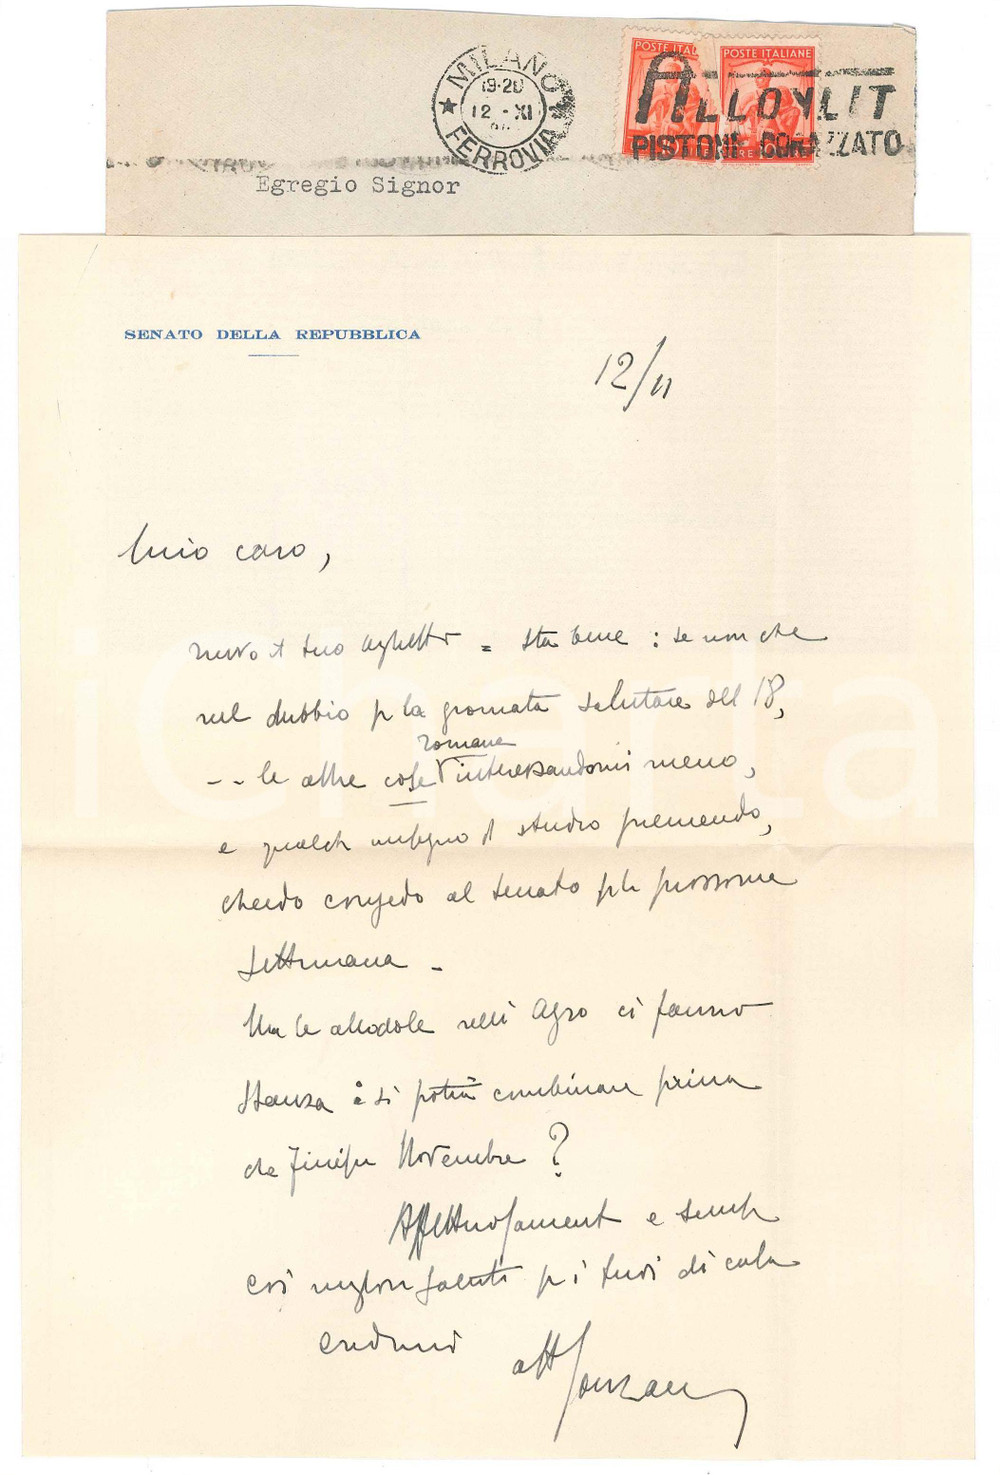 MILANO
19·20
12 - XI
FERROVIA
POSTE ITAL
POSTE ITALIANE
ALLOYLIT
PISTONE CORAZZATO
Egregio Signor
SENATO DELLA REPUBBLICA
12/11
Mio caro,
il tuo = sta bene : se non che
nel dubbio p la giornata salutare del 18,
romane
-- le altre cose interessandomi meno,
e qualch impegno d studio premendo,
chiedo congedo al Senato pla prossima
settimana -
Ma le allodole nell' Agro ci fanno
stanza e si potrà combinare prima
che finisca Novembre ?
Affettuosament e semp
così saluti p i tuoi di casa
credimi
aff
iCharta